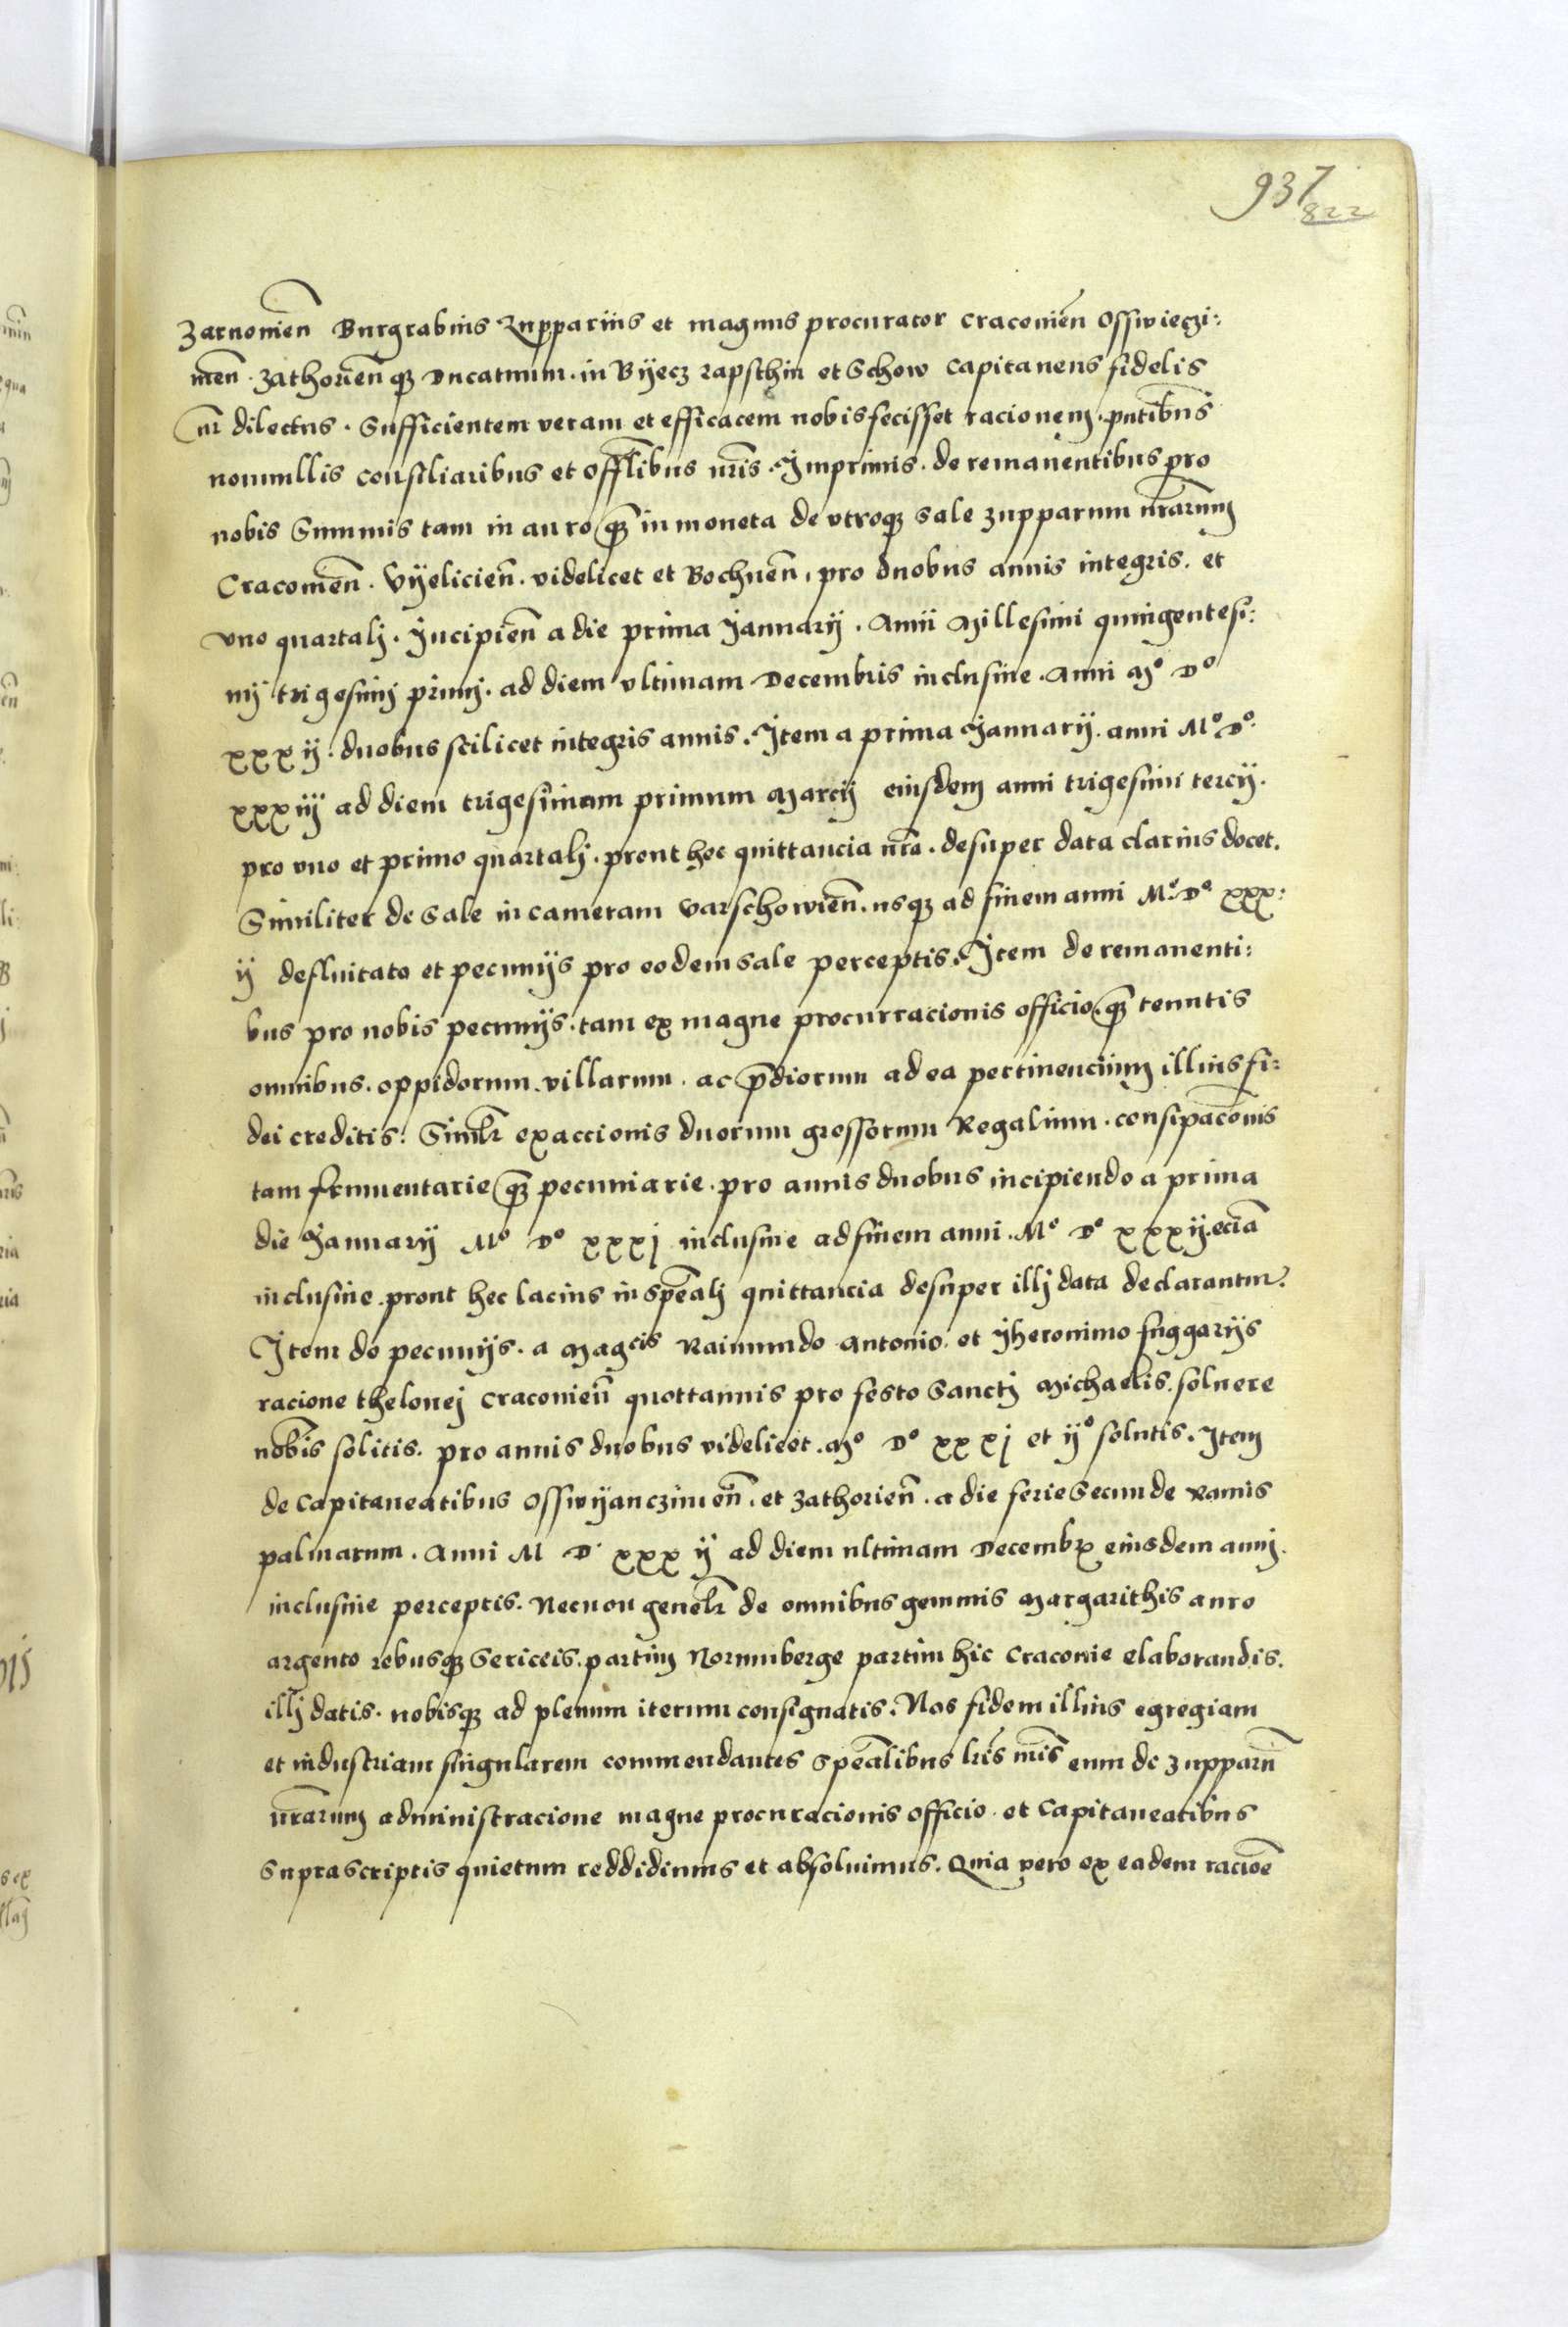 937
822
Zarnomen̄ Burgrabius Zupparius et magnus procurator Cracomen̄ Osswieczi:
men̄. Zathorien̄ qȝ Ducatuum. in Byecz rapsthin et Schow Capitaneus fidelis
nr̄ dilectus. Sufficientem veram et efficacem nobis fecisset racionem. pn̄tibus
nonnullis consiliaribus et offl̄ibus nr̄is. Imprimis. de remanentibus pro
nobis Summis tam in auro qȝ in moneta de vtroqȝ sale zupparum nr̄arum
Cracomen̄. Vyelicien̄. videlicet et Bochnen̄, pro duobus annis integris. et
vno quartalj. Incipien̄ a die prima Januarij. Anni Millesimi quingentesi:
mj trigesimj primj. ad diem vltimam Decembris inclusiue. Anni Mº Dº
xxxij. duobus scilicet integris annis. Item a prima Januarij. anni Mº. Dº.
xxxiij ad diem trigesimam primam Marcij eiusdem anni trigesimi tercij.
pro vno et primo quartalj. prout hec quittancia nr̄a. desuper data clarius docet.
Similiter de Sale in cameram Varschowien̄. usqȝ ad finem anni Mº. Dº xxx:
ij defluitato et pecunijs pro eodem sale perceptis. Item de remanenti:
bus pro nobis pecunijs. tam ex magne procurracionis officio. qȝ tenutis
omnibus. oppidorum. villarum. ac p̄diorum ad ea pertinencium illius fi:
dei creditis. Simlr̄ exaccionis duorum grossorum Regalium. consipac̄onis
tam frumentarie qȝ pecuniarie. pro annis duobus incipiendo a prima
die Januarij Mº Dº xxxj inclusiue ad finem anni. Mº Dº xxxij. eciā
inclusiue. prout hec lacius in spēalj quittancia desuper illj data declarantur.
Item de pecunijs. a Mag̃cis Raimundo Antonio. et yheronimo fuggarijs
racione thelonej Cracomien̄ quottannis pro festo Sanctj Michaelis. soluere
nobis solitis. pro annis duobus videlicet. Mº Dº xxxj et ijº solutis. Item
de Capitaneatibus Osswyanczimen̄. et Zathorien̄. a die ferie Secunde Ramis
palmarum. Anni M D. xxxij ad diem ultimam Decembr̄ eiusdem annj.
inclusiue perceptis. Necnon genelr̄ de omnibus gemmis Margarithis auro
argento rebusqȝ Sericeis. partim Norumberge partim hic Cracouie elaborandis.
illj datis. nobisqȝ ad plenum iterum consignatis. Nos fidem illius egregiam
et industriam singularem commendantes Spēalibus lr̄is nr̄is eum de zupparū
nr̄arum administracione magne procuracionis officio. et Capitaneatibus
Suprascriptis quietum reddidimus et absoluimus. Quia vero ex eadem racioē